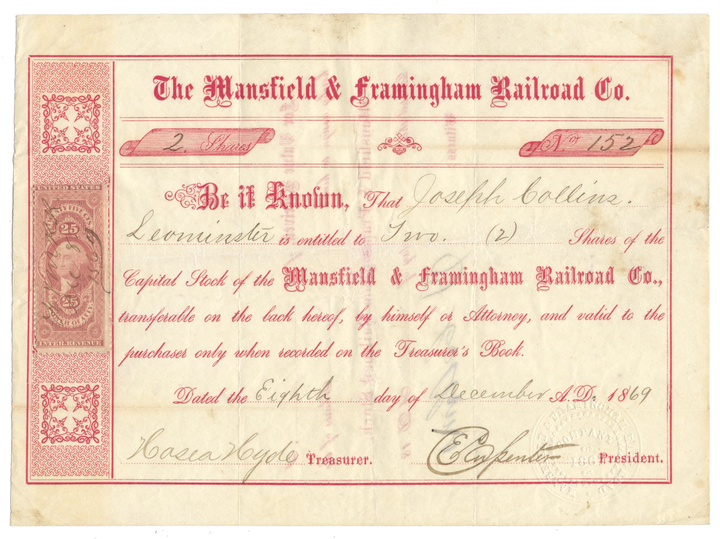 The Mansfield & Framingham Railroad Co.
2 Shares
No. 152
Be it Known, That Joseph Collins.
Leominster is entitled to Two. (2) Shares of the
Capital Stock of the Mansfield & Framingham Railroad Co.,
transferable on the back hereof, by himself or Attorney, and valid to the
purchaser only when recorded on the Treasurer's Book.
Dated the Eighth day of December A.D. 1869
Hosea Hyde Treasurer.
E Carpenter President.
UNITED STATES
25
25
INTER. REVENUE